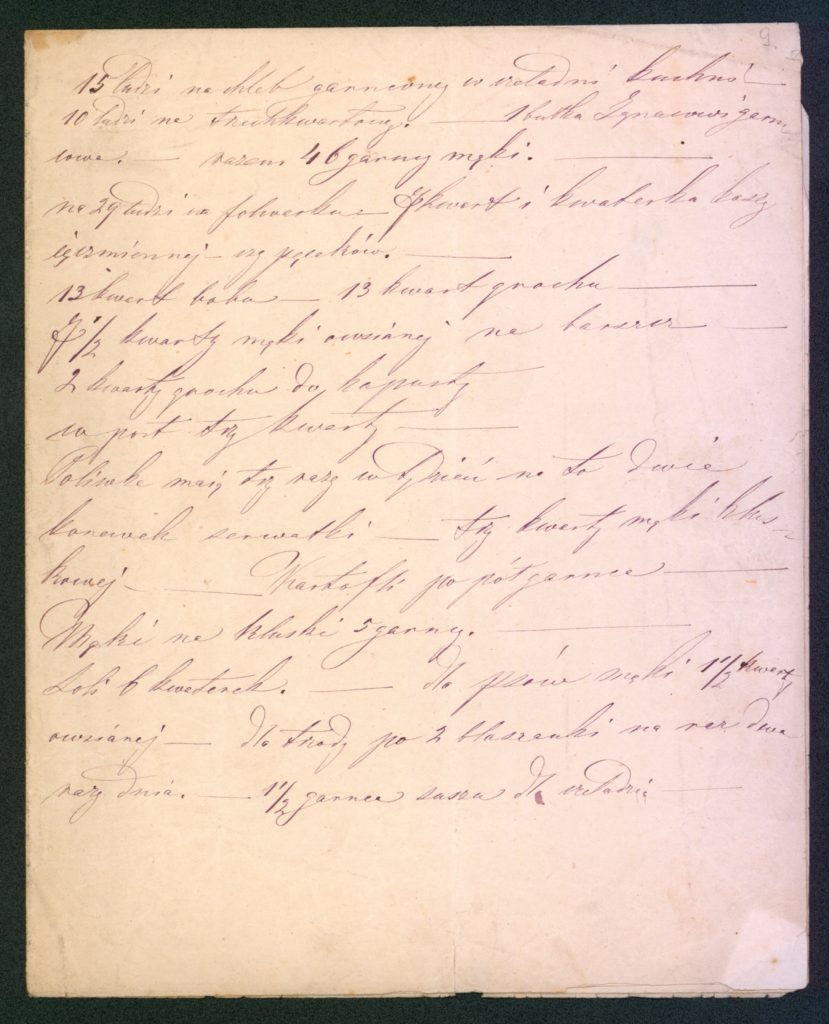 9.
15 ludzi na chleb garncowy w czeladni kuchni
10 ludzi na trzykwartowy. — 1 bułka Ignacowi garn
cowa. — razem 46 garncy mąki. —
na 29 ludzi na folwarku — 7 kwart i kwaterka kaszy
ięczmiennej — czy pęcaków. —
13 kwart bobu — 13 kwart grochu —
7 1/2 kwarty mąki owsianej na barszcz —
2 kwarty grochu do kapusty
w post trzy kwarty —
Poliwke maią trzy razy w tydzień na to dwie
konewek serwatki — trzy kwarty mąki klus-
kowej — Kartofli po półgarnca —
Mąki na kluski 5 garncy. —
Soli 6 kwaterek. — dla psów mąki 1 1/2 kwarty
owsianej — dla trzody po 2 blaszanki na raz dwa
razy dnia. — 1 1/2 garnca dla czeladzi —